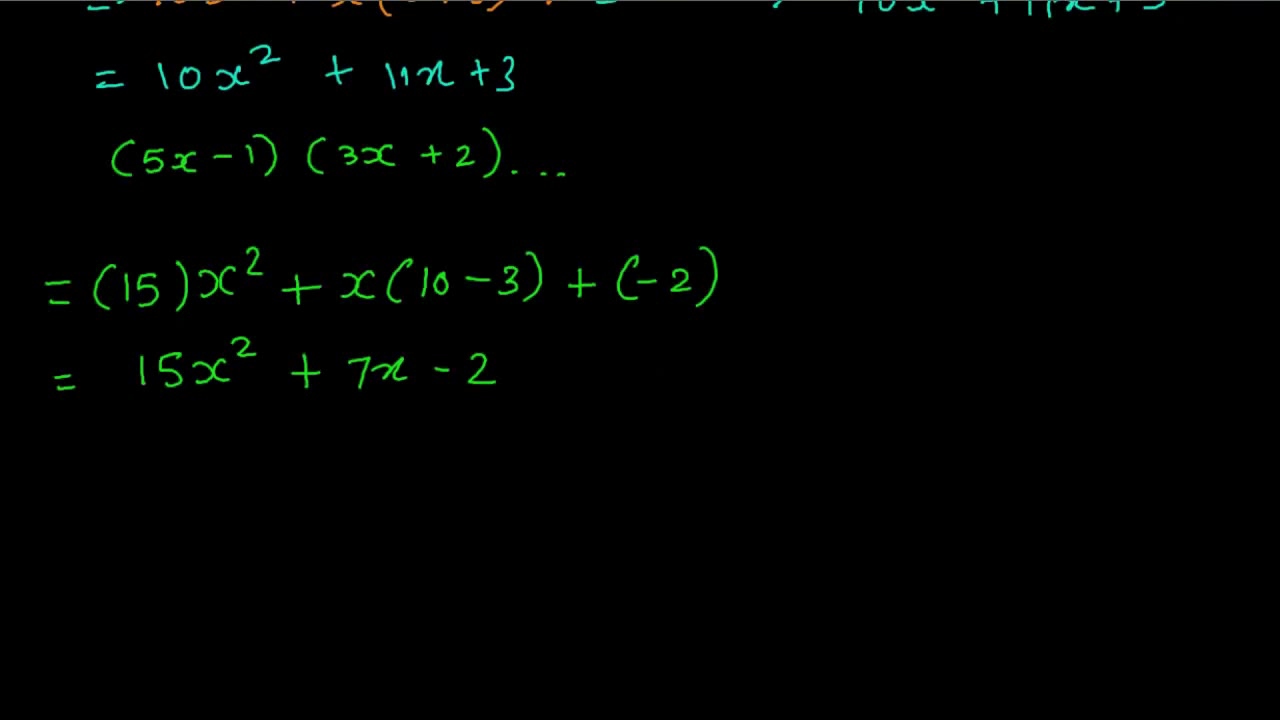 = 10x² + 11x + 3
(5x - 1) (3x + 2) ....
= (15)x² + x(10 - 3) + (-2)
= 15x² + 7x - 2